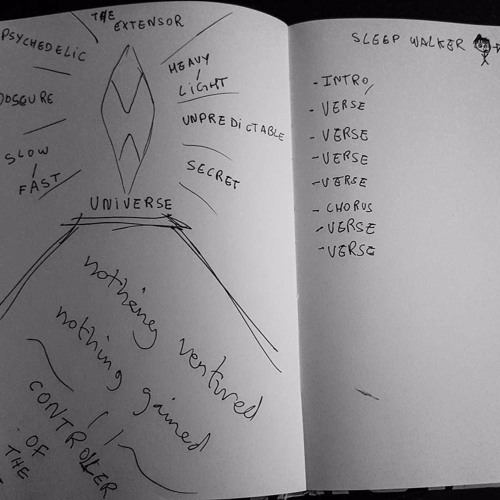 THE
EXTENSOR
PSYCHEDELIC
HEAVY
/
LIGHT
OBSCURE
UNPREDICTABLE
SLOW
/
FAST
SECRET
UNIVERSE
nothing ventured
nothing gained
CONTROLLER
OF
THE
SLEEP WALKER
- INTRO
- VERSE
- VERSE
- VERSE
- VERSE
- CHORUS
- VERSE
- VERSE